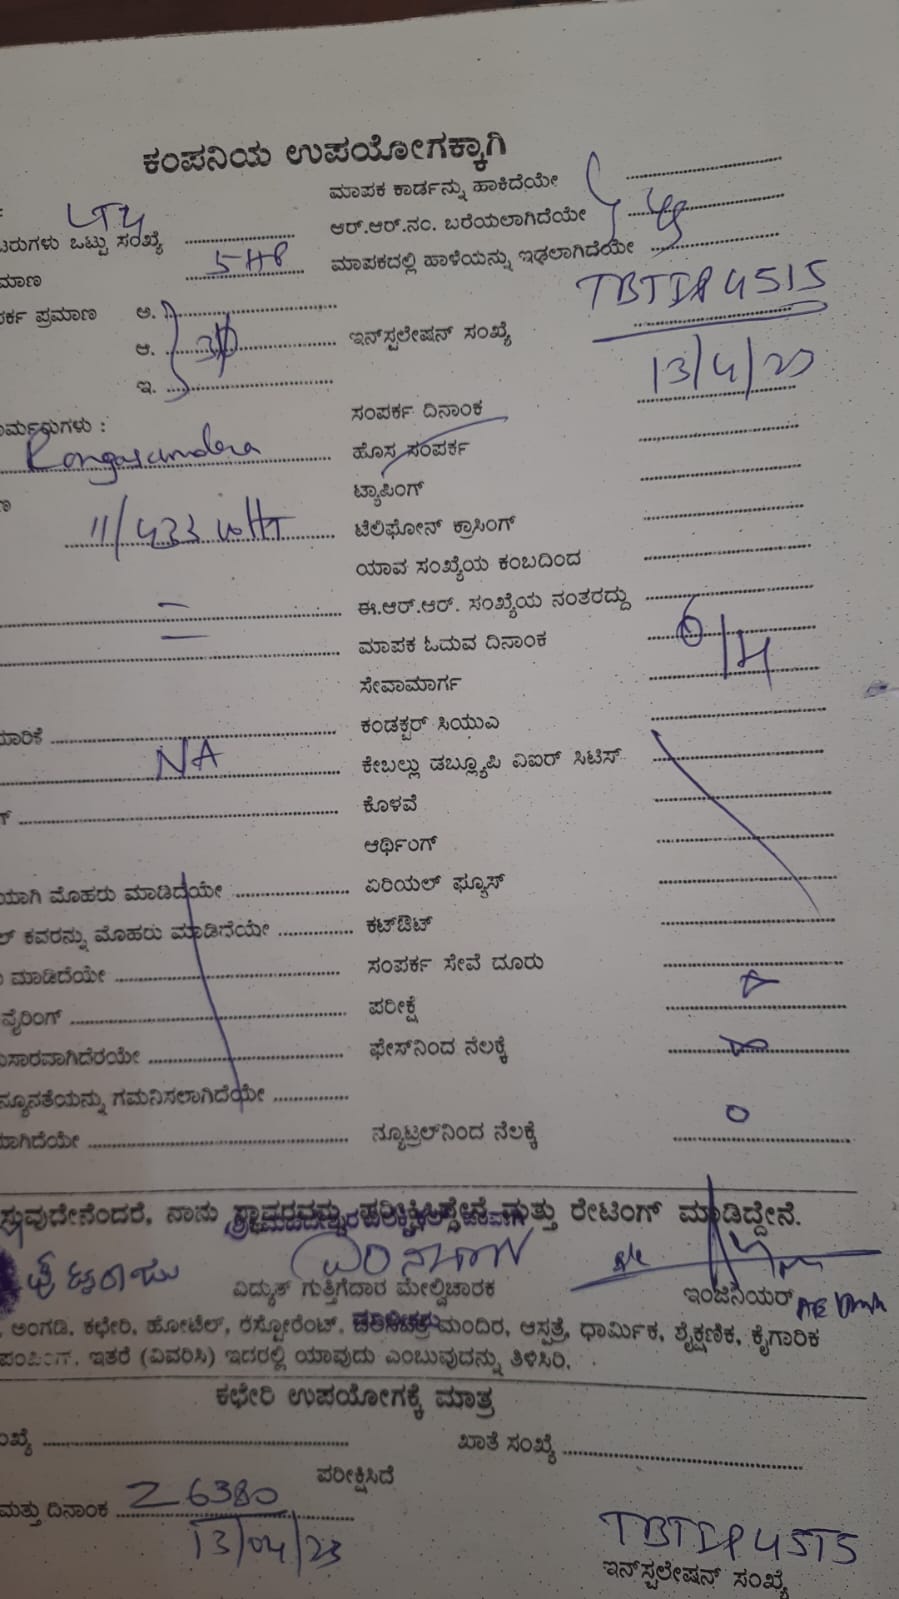 ಕಂಪನಿಯ ಉಪಯೋಗಕ್ಕಾಗಿ
ಮಾಪಕ ಕಾರ್ಡನ್ನು ಹಾಕಿದೆಯೇ
ಟರುಗಳು ಒಟ್ಟು ಸಂಖ್ಯೆ ಆರ್.ಆರ್.ನಂ. ಬರೆಯಲಾಗಿದೆಯೇ
ಮಾಣ 5HP ಮಾಪಕದಲ್ಲಿ ಹಾಳೆಯನ್ನು ಇಡಲಾಗಿದೆಯೇ
ರ್ಕ ಪ್ರಮಾಣ ಅ. TBTIP4515
ಆ. ಇನ್‌ಸ್ಟಲೇಷನ್ ಸಂಖ್ಯೆ
ಇ. 13/4/23
ರ್ಮರುಗಳು : ಸಂಪರ್ಕ ದಿನಾಂಕ
ಹೊಸ ಸಂಪರ್ಕ
ಟ್ಯಾಪಿಂಗ್
11/433 ಟೆಲಿಫೋನ್ ಕ್ರಾಸಿಂಗ್
ಯಾವ ಸಂಖ್ಯೆಯ ಕಂಬದಿಂದ
ಈ.ಆರ್.ಆರ್. ಸಂಖ್ಯೆಯ ನಂತರದ್ದು
ಮಾಪಕ ಓದುವ ದಿನಾಂಕ
ಸೇವಾಮಾರ್ಗ
ಕಂಡಕ್ಟರ್ ಸಿಯುಎ
NA ಕೇಬಲ್ಲು ಡಬ್ಲ್ಯೂಪಿ ವಿಐರ್ ಸಿಟಿಸ್
ಕೊಳವೆ
ಆರ್ಥಿಂಗ್
ಯಾಗಿ ಮೊಹರು ಮಾಡಿದೆಯೇ ಏರಿಯಲ್ ಫ್ಯೂಸ್
ಲ್ ಕವರನ್ನು ಮೊಹರು ಮಾಡಿದೆಯೇ ಕಟ್‌ಔಟ್
ಮಾಡಿದೆಯೇ ಸಂಪರ್ಕ ಸೇವೆ ದೂರು
ವೈರಿಂಗ್ ಪರೀಕ್ಷೆ
ಸಾರವಾಗಿದೆರಯೇ ಫೇಸ್‌ನಿಂದ ನೆಲಕ್ಕೆ
ನ್ಯೂನತೆಯನ್ನು ಗಮನಿಸಲಾಗಿದೆಯೇ
ಾಗಿದೆಯೇ ನ್ಯೂಟ್ರಲ್‌ನಿಂದ ನೆಲಕ್ಕೆ 0
ಸುವುದೇನೆಂದರೆ, ನಾನು ಸ್ಥಾವರವನ್ನು ಪರೀಕ್ಷಿಸಿದ್ದೇನೆ ಮತ್ತು ರೇಟಿಂಗ್ ಮಾಡಿದ್ದೇನೆ.
ವಿದ್ಯುತ್ ಗುತ್ತಿಗೆದಾರ ಮೇಲ್ವಿಚಾರಕ ಇಂಜಿನಿಯರ್
ಅಂಗಡಿ, ಕಛೇರಿ, ಹೋಟೆಲ್, ರೆಸ್ಟೋರೆಂಟ್, ಚಲನಚಿತ್ರ ಮಂದಿರ, ಆಸ್ಪತ್ರೆ, ಧಾರ್ಮಿಕ, ಶೈಕ್ಷಣಿಕ, ಕೈಗಾರಿಕ
ಪಂಪಿಂಗ್. ಇತರೆ (ವಿವರಿಸಿ) ಇದರಲ್ಲಿ ಯಾವುದು ಎಂಬುವುದನ್ನು ತಿಳಿಸಿರಿ.
ಕಛೇರಿ ಉಪಯೋಗಕ್ಕೆ ಮಾತ್ರ
ಖ್ಯೆ ಖಾತೆ ಸಂಖ್ಯೆ
ಪರೀಕ್ಷಿಸಿದೆ
ಮತ್ತು ದಿನಾಂಕ 26380
13/04/23 TBTIP4515
ಇನ್‌ಸ್ಟಲೇಷನ್ ಸಂಖ್ಯೆ